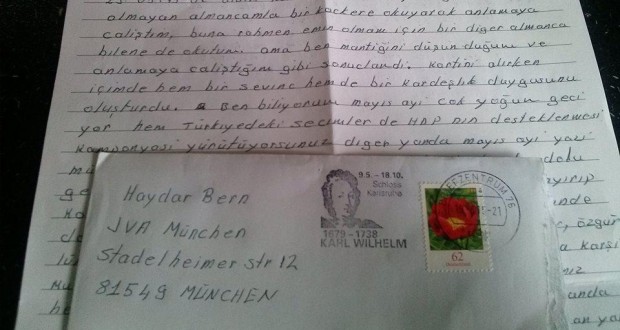 olmayan almancamla bir kackere okuyarak anlamaya
calıştım, buna rahmen emin olmam için bir diğer almanca
bilene de okutum. ama ben mantiğini düşün duğum ve
anlamaya caliştiğım gibi sonuclandi. Kartini alırken
içimde hem bir sevinc hemde bir Kardeşlik duygusunu
oluşturdu. Ben biliyorum mayis ayi cok yoğun geci
yor hem Türkiyedeki secimler de HDP nin desteklenmesi
Kampanyasi yürütüyorsunuz diğer yanda mayis ayi yazi
dolu
ayirip
inde
özgür
a karşı
anda
an yan
Haydar Bern
JVA München
Stadelheimer str 12
81549 MÜNCHEN
9.5. – 18.10.
Schloss
Karlsruhe
1679 – 1738
KARL WILHELM
BRIEFZENTRUM 76
-21
62